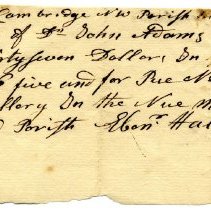 Cambridge NW Parish
of Dn John Adams
tyseven Dollars In
five and for Pue N
llery In the Nue M
Parish Ebenr Ha